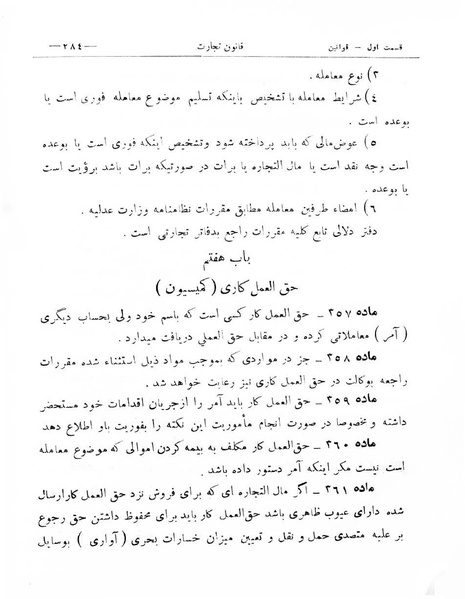 قسمت اول – قوانین    قانون تجارت    —۲۸۴—
۳) نوع معامله .
٤) شرایط معامله با تشخیص باینکه تسلیم موضوع معامله فوری است یا
بوعده است .
۵) عوض مالی که باید پرداخته شود وتشخیص اینکه فوری است یا بوعده
است وجه نقد است یا مال التجاره یا برات در صورتیکه برات باشد برؤیت است
یا بوعده .
٦) امضاء طرفین معامله مطابق مقررات نظامنامه وزارت عدلیه .
دفتر دلالی تابع کلیه مقررات راجع بدفاتر تجارتی است .
باب هفتم
حق العمل کاری ( کمیسیون )
ماده ۳۵۷ – حق العمل کار کسی است که باسم خود ولی بحساب دیگری
( آمر ) معاملاتی کرده و در مقابل حق العملی دریافت میدارد .
ماده ۳۵۸ – جز در مواردی که بموجب مواد ذیل استثناء شده مقررات
راجعه بوکالت در حق العمل کاری نیز رعایت خواهد شد .
ماده ۳۵۹ – حق العمل کار باید آمر را ازجریان اقدامات خود مستحضر
داشته و مخصوصا در صورت انجام مأموریت این نکته را بفوریت باو اطلاع دهد
ماده ۳٦۰ – حق‌العمل کار مکلف به بیمه کردن اموالی که موضوع معامله
است نیست مگر اینکه آمر دستور داده باشد .
ماده ۳٦۱ – اگر مال التجاره ای که برای فروش نزد حق العمل کارارسال
شده دارای عیوب ظاهری باشد حق‌العمل کار باید برای محفوظ داشتن حق رجوع
بر علیه متصدی حمل و نقل و تعیین میزان خسارات بحری ( آواری ) بوسایل